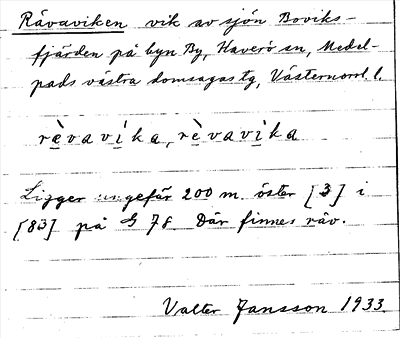 Råvaviken vik av sjön Boviks-
fjärden på byn By, Haverö sn, Medel-
pads västra domsagas tg, Västernorrl. l.
rèvavíka, rèvavìka
Ligger ungefär 200 m. öster [3] i
[83] på G 78. Där finnes räv.
Valter Jansson 1933.